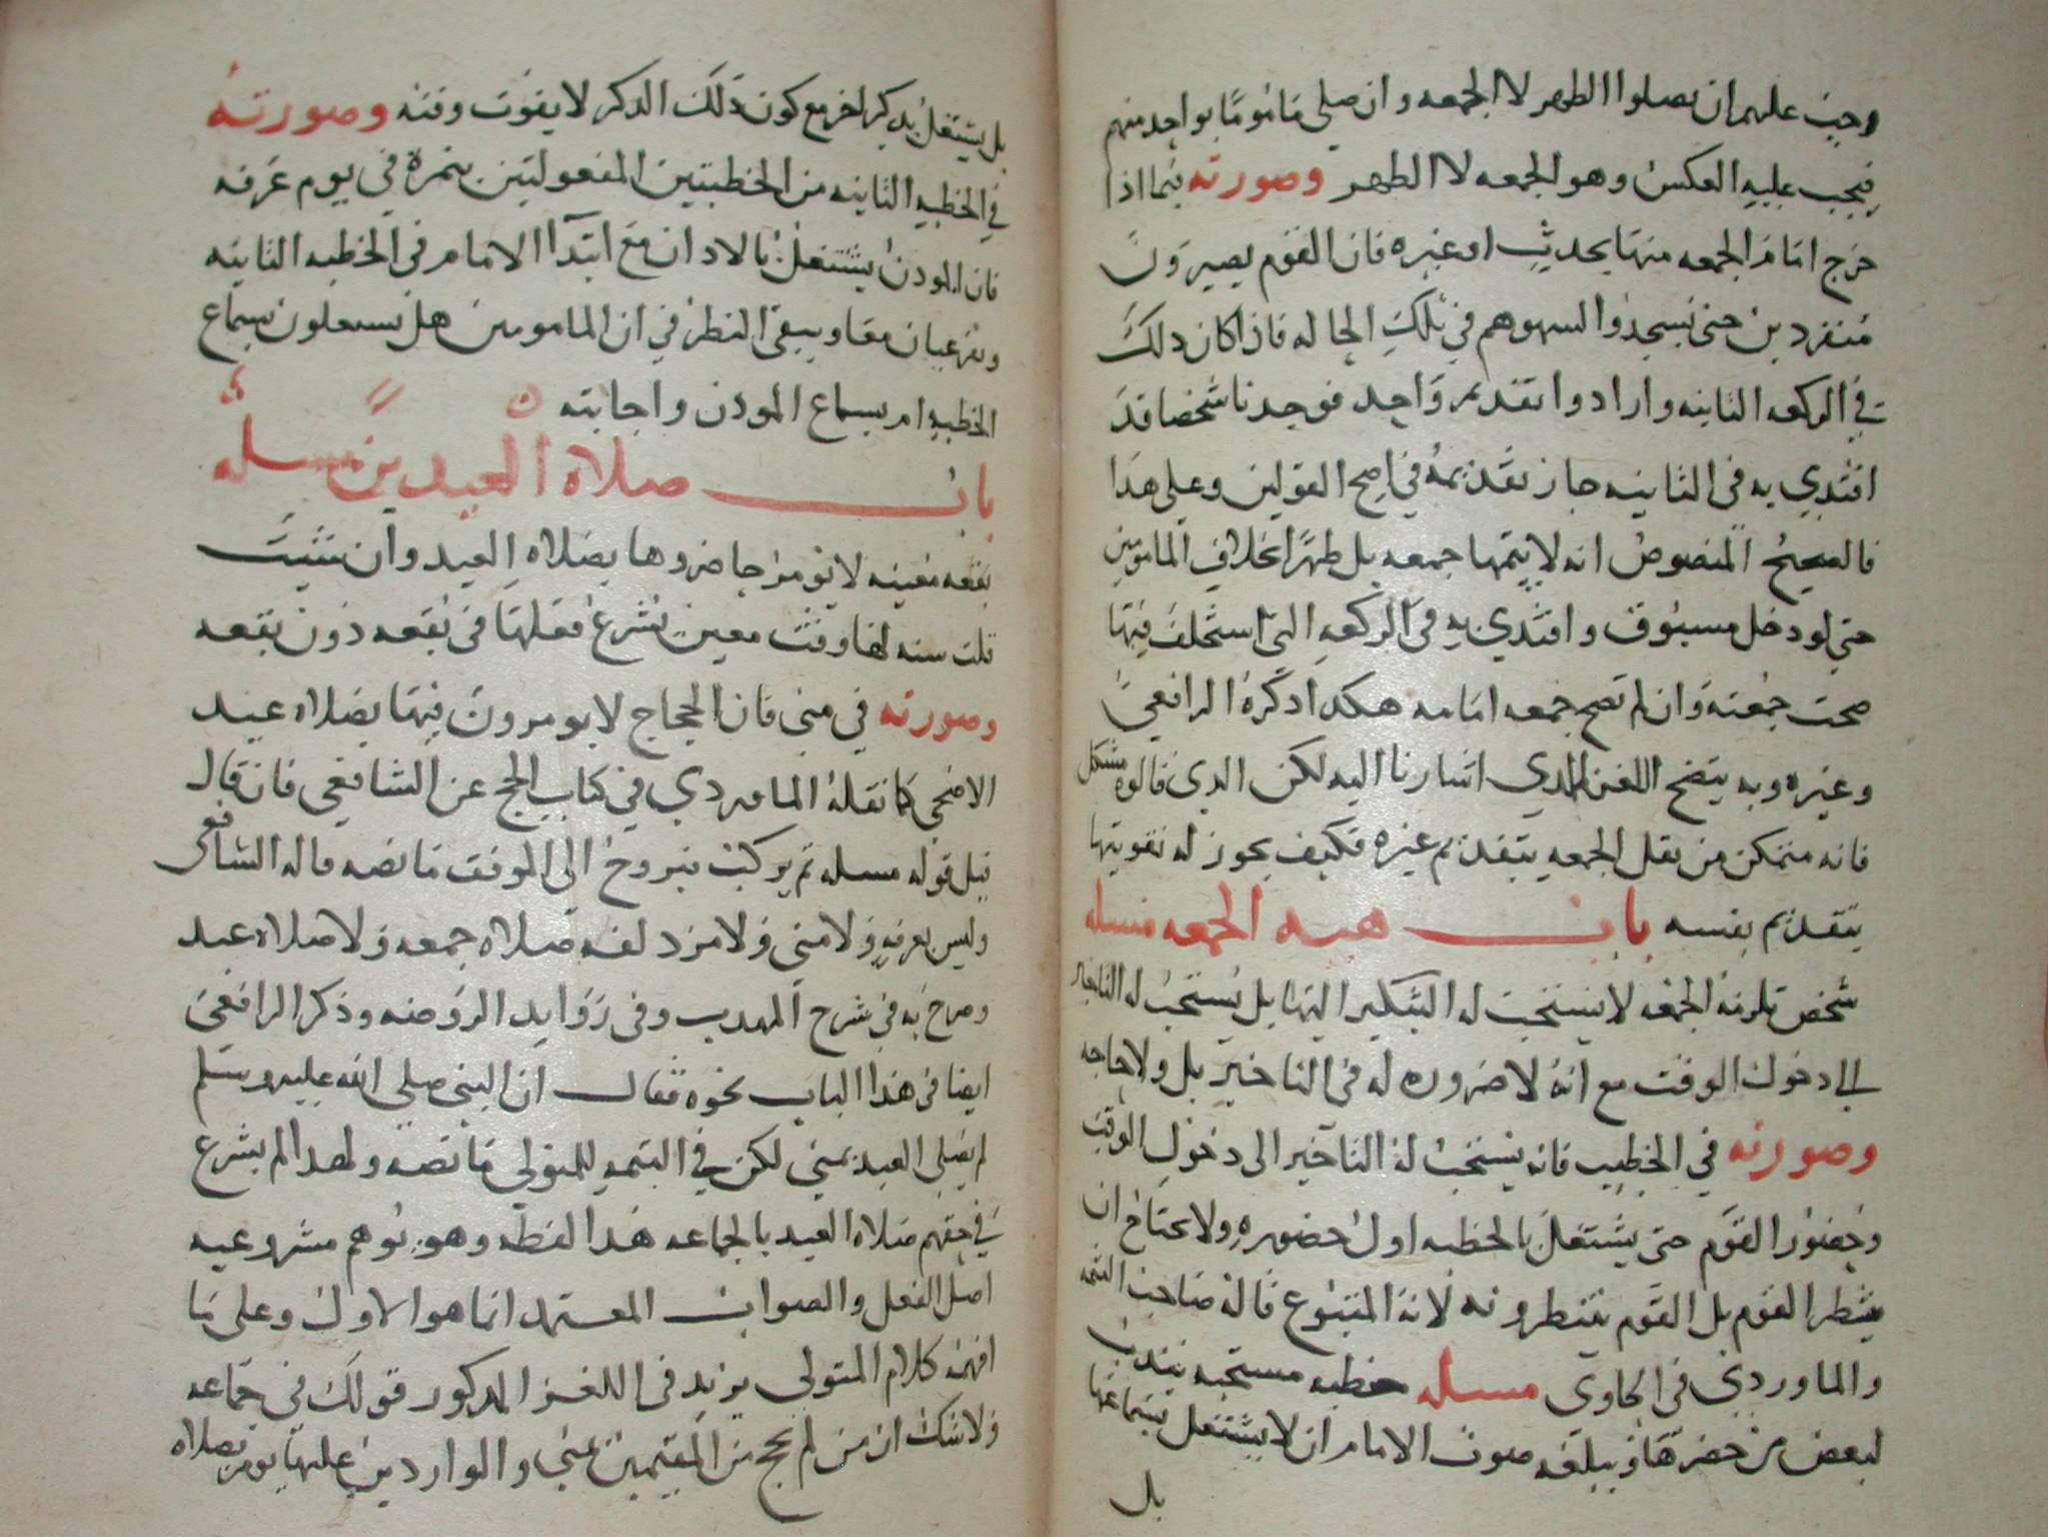 وجب عليهم ان يصلوا الظهر لا الجمعه وان صلي ماموما بواحد منهم
فيجب عليه العكس وهو الجمعه لا الظهر وصورته فيما اذا
خرج امام الجمعه منها بحدث او غيره فان القوم يصيرون
منفردين حتى يسجدوا لسهوهم في تلك الحاله فاذا كان ذلك
في الركعه الثانيه وارادوا تقديم واحد فوجدنا شخصا قد
اقتدي به في الثانيه جاز تقديمه في اصح القولين وعلي هذا
فالصحيح المنصوص انه لا يتمها جمعه بل ظهرا بخلاف المامومين
حتي لو دخل مسبوق واقتدي به في الركعه التي استخلف فيها
صحت جمعته وان لم تصح جمعه امامه هكذا ذكره الرافعي
وغيره وبه يتضح اللغز الذي اشارنا اليه لكن الذي قالوه مشكل
فانه متمكن من نقل الجمعه بتقديم غيره فكيف يجوز له تفويتها
بتقديم نفسه باب هيه الجمعه مسله
شخص تلزمه الجمعه لا يستحب له التبكير اليها بل يستحب له التاخير
الى دخول الوقت مع انه لا ضروره له في التاخير بل ولا حاجه
وصورته في الخطيب فانه يستحب له التاخير الى دخول الوقت
وحضور القوم حتى يشتغل بالخطبه اول حضوره ولا يحتاج ان
ينتظر القوم بل القوم ينتظرونه لانه المتبوع قاله صاحب التتمه
والماوردي في الحاوي مسله خطبه مستحبه يندب
لبعض من حضرها ويبلغه صوت الامام ان لا يشتغل بسماعها
بل
بل يشتغل بذكر اخر مع كون ذلك الذكر لا يفوت وقته وصورته
في الخطبه الثانيه من الخطبتين المفعولتين بنمره في يوم عرفه
فان الموذن يشتغل بالاذان مع ابتدآ الامام في الخطبه الثانيه
ويفرغان معا ويبقى النظر في ان المامومين هل يشتغلون بسماع
الخطبه ام بسماع الموذن واجابته
باب صلاه العيدين مسله
بقعه معينه لا يومر حاضروها بصلاه العيد وان شيت
قلت سنه لها وقت معين يشرع فعلها في بقعه دون بقعه
وصورته في منى فان الحجاج لا يومرون فيها بصلاه عيد
الاضحى كما نقله الماوردي في كتاب الحج عن الشافعي فانه قال
قبيل قوله مسله ثم يركب فيروح الي الموقف ما نصه قاله الشافعي
وليس بعرفه ولا منى ولا مزدلفه صلاه جمعه ولا صلاه عيد
وصرح به في شرح المهذب وفي زوايد الروضه وذكر الرافعي
ايضا في هذا الباب نحوه فقال ان النبي صلي الله عليه وسلم
لم يصلي العيد بمنى لكن في التتمه للمتولي ما نصه ولهذا لم يشرع
في حقهم صلاه العيد بالجماعه هذا لفظه وهو يوهم مشروعيه
اصل الفعل والصواب المعتمد انما هو الاول وعلى ما
افهمه كلام المتولي يزيد في اللغز المذكور قولك في جماعه
ولا شك ان من لم يحج من المقيمين بمنى والواردين عليها يومر بصلاه